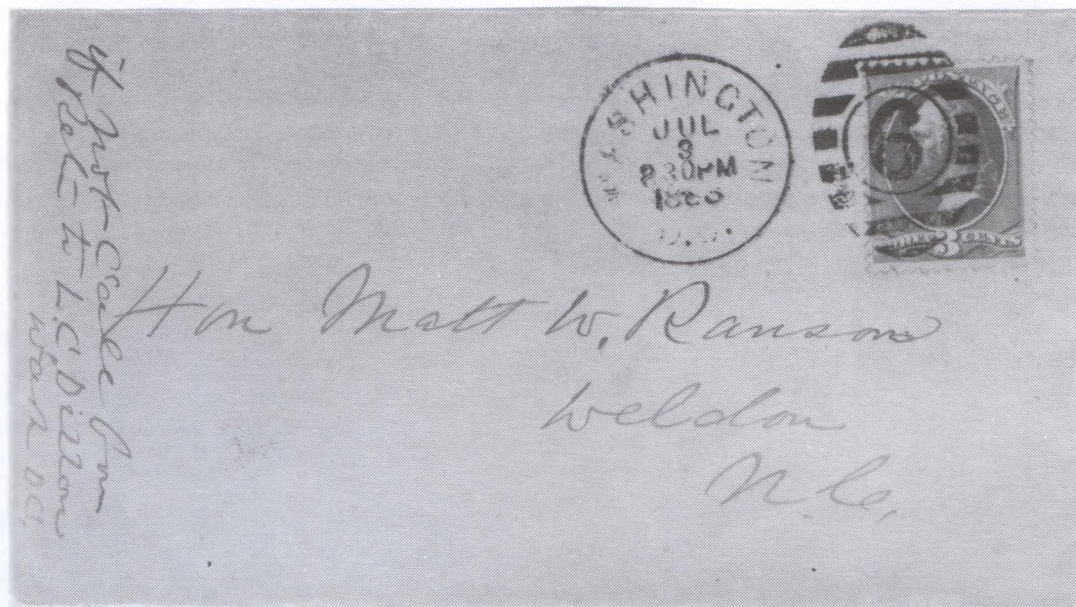 if Not Called for
Ret. to L.C. Dillon
Wash D.C.
WASHINGTON
JUL
3
230PM
1880
D.C.
6
3
CENTS
Hon Matt W. Ransom
Weldon
N.C.